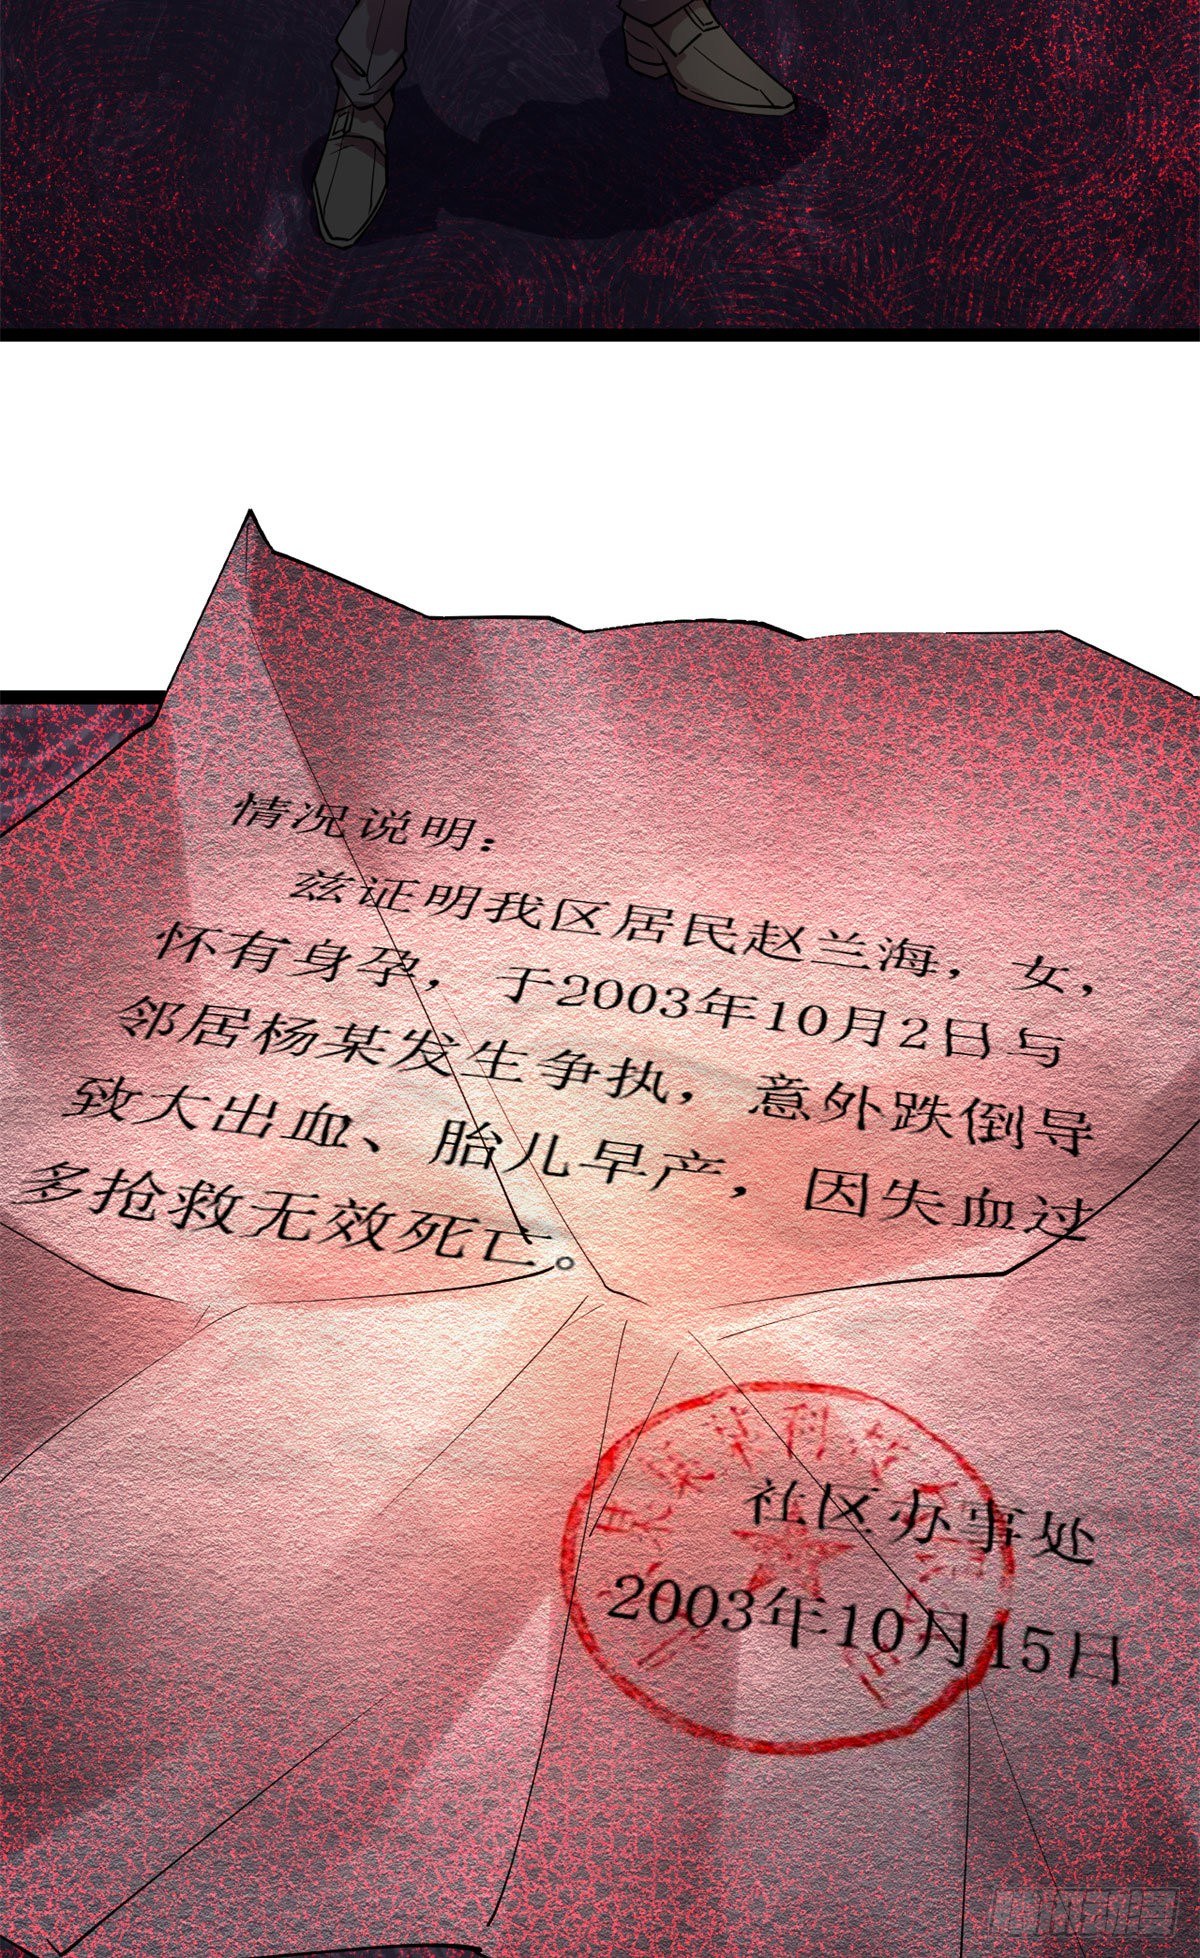 情况说明：
兹证明我区居民赵兰海，女，
怀有身孕，于2003年10月2日与
邻居杨某发生争执，意外跌倒导
致大出血、胎儿早产，因失血过
多抢救无效死亡。
社区办事处
2003年10月15日